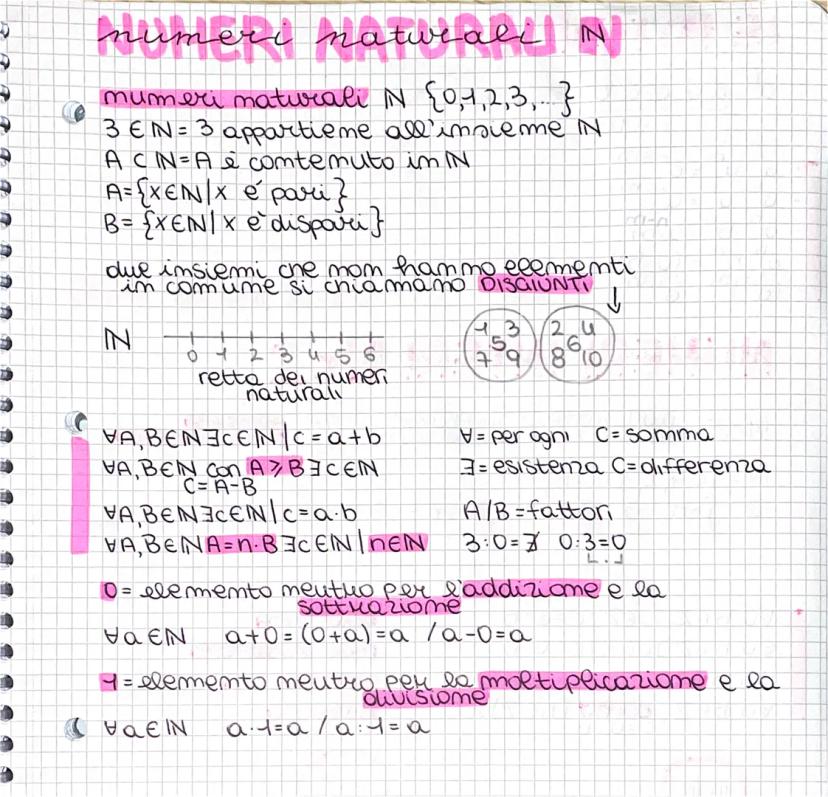 NUMERI NATURALI
numeri naturali ℕ
numeri naturali ℕ {0,1,2,3,...}
3 ∈ ℕ = 3 appartiene all'insieme ℕ
A ⊂ ℕ = A è contenuto in ℕ
A = {x∈ℕ | x é pari}
B = {x∈ℕ | x è dispari}
due insiemi che non hanno elementi
in comune si chiamano DISGIUNTI
↓
ℕ
0 1 2 3 4 5 6
retta dei numeri
naturali
1 3
5
7 9
2 4
6
8 10
∀A,B∈ℕ ∃c∈ℕ | c = a+b
∀ = per ogni C = somma
∀A,B∈ℕ con A ⩾ B ∃c∈ℕ
C = A-B
∃ = esistenza C = differenza
∀A,B∈ℕ ∃c∈ℕ | c = a·b
A/B = fattori
∀A,B∈ℕ A = n·B ∃c∈ℕ | n∈ℕ
3:0 = ∄ 0:3=0
0 = elemento neutro per l'addizione e la
sottrazione
∀a∈ℕ a+0 = (0+a) = a / a-0 = a
1 = elemento neutro per la moltiplicazione e la
divisione
∀a∈ℕ a·1=a / a:1=a